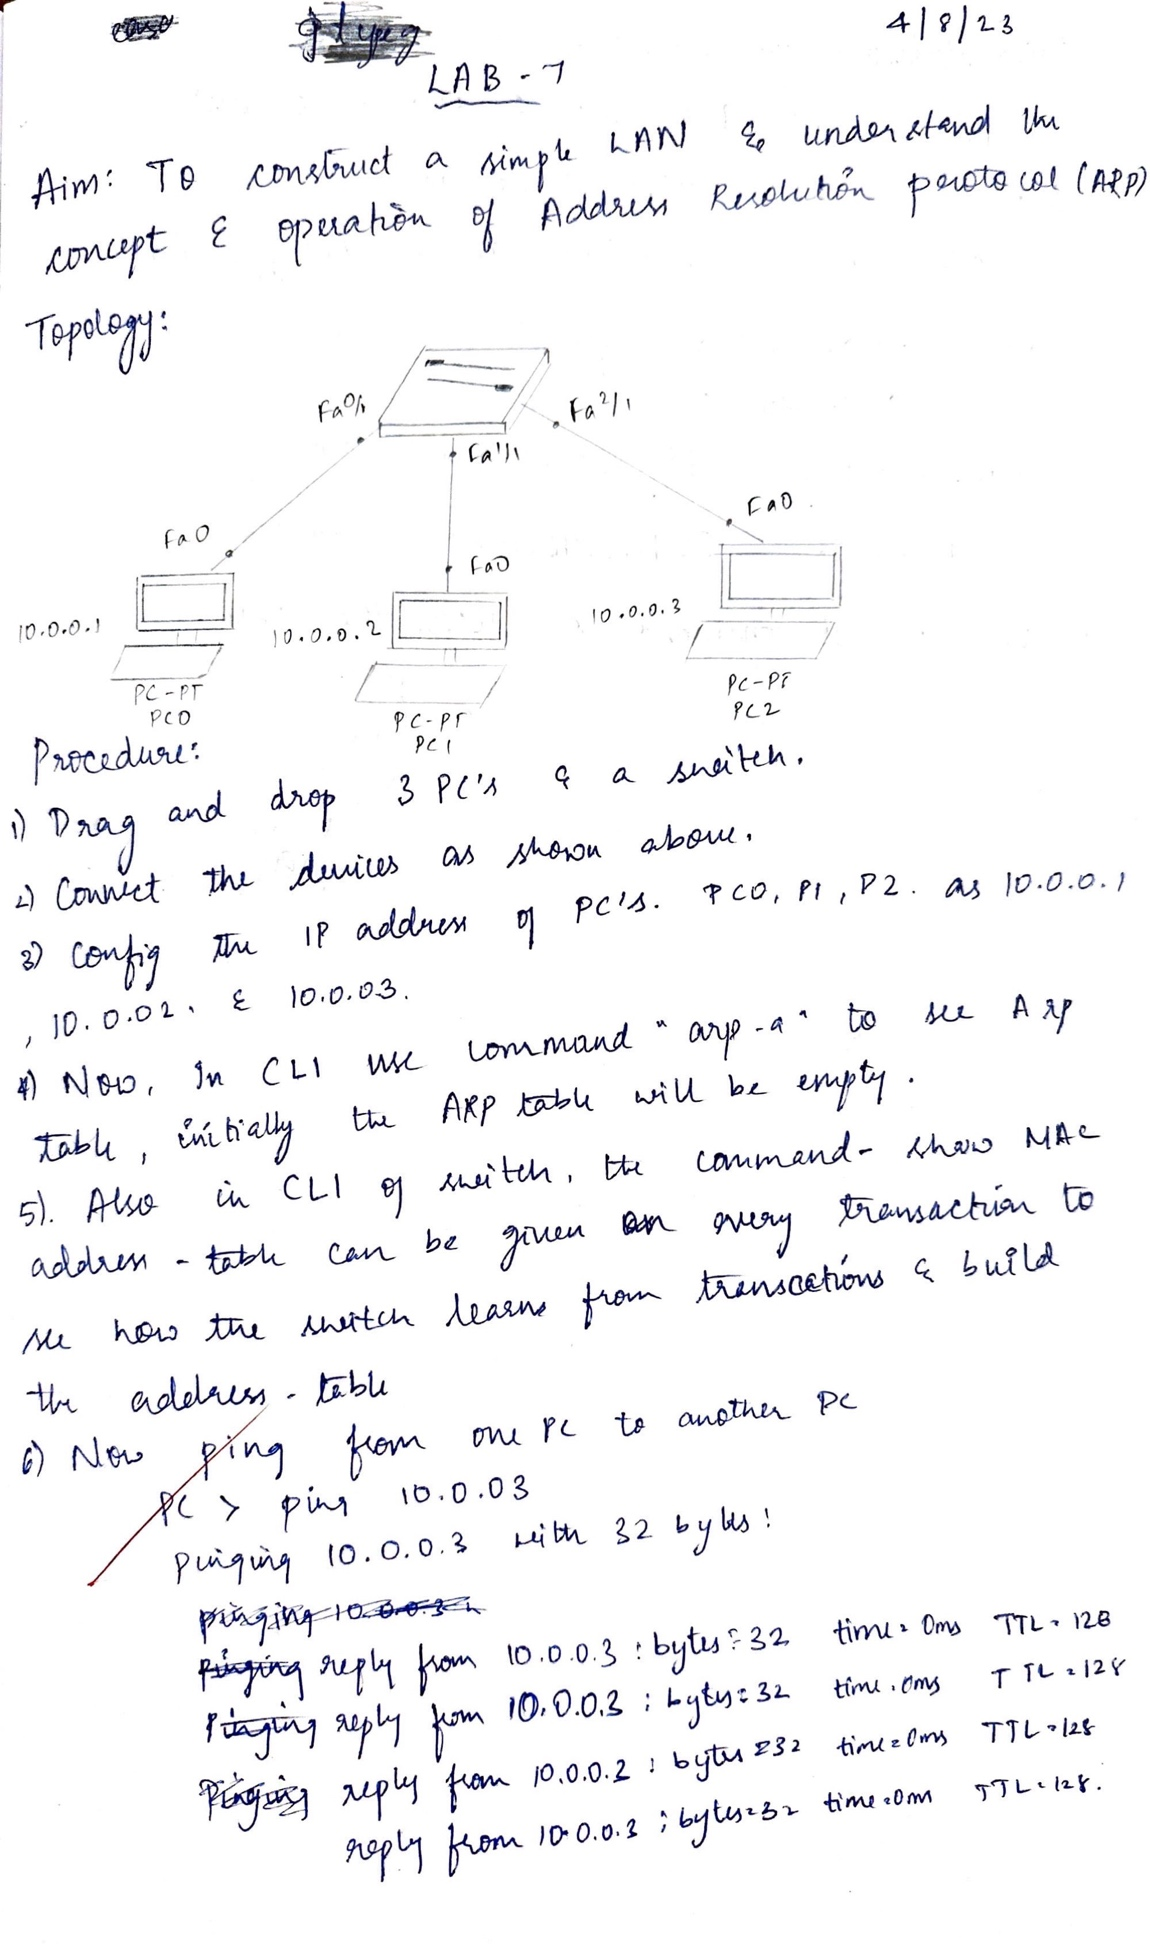 4/8/23
LAB - 7
Aim: To construct a simple LAN & understand the
concept & operation of Address Resolution protocol (ARP)
Topology:
Fa0/1
Fa2/1
Fa1/1
Fa0
Fa0
Fa0
10.0.0.1
10.0.0.2
10.0.0.3
PC-PT
PC0
PC-PT
PC1
PC-PT
PC2
Procedure:
1) Drag and drop 3 PC's & a switch.
2) Connect the devices as shown above.
3) Config the IP address of PC's. PC0, P1, P2. as 10.0.0.1
, 10.0.02. & 10.0.03.
4) Now, In CLI use command "arp -a" to see Arp
table, initially the ARP table will be empty.
5). Also in CLI of switch, the command- show MAC
address - table can be given on every transaction to
see how the switch learns from transcations & build
the address - table
6) Now ping from one PC to another PC
PC > ping 10.0.03
Pinging 10.0.0.3 with 32 bytes:
pinging 10.0.0.3
Pinging reply from 10.0.0.3 : bytes=32 time=0ms TTL=128
Pinging reply from 10.0.0.3 : bytes=32 time=0ms TTL=128
Pinging reply from 10.0.0.3 : bytes=32 time=0ms TTL=128
reply from 10.0.0.3 : bytes=32 time=0m TTL=128.